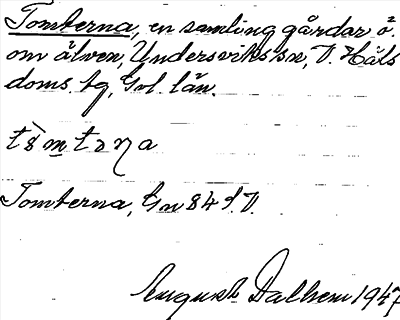 Tomterna, en samling gårdar ö.
om älven, Undersviks sn, V. Häls
doms. tg, Gvl. län.
Tomterna, Gn 84 S.V.
August Dalhem 1947